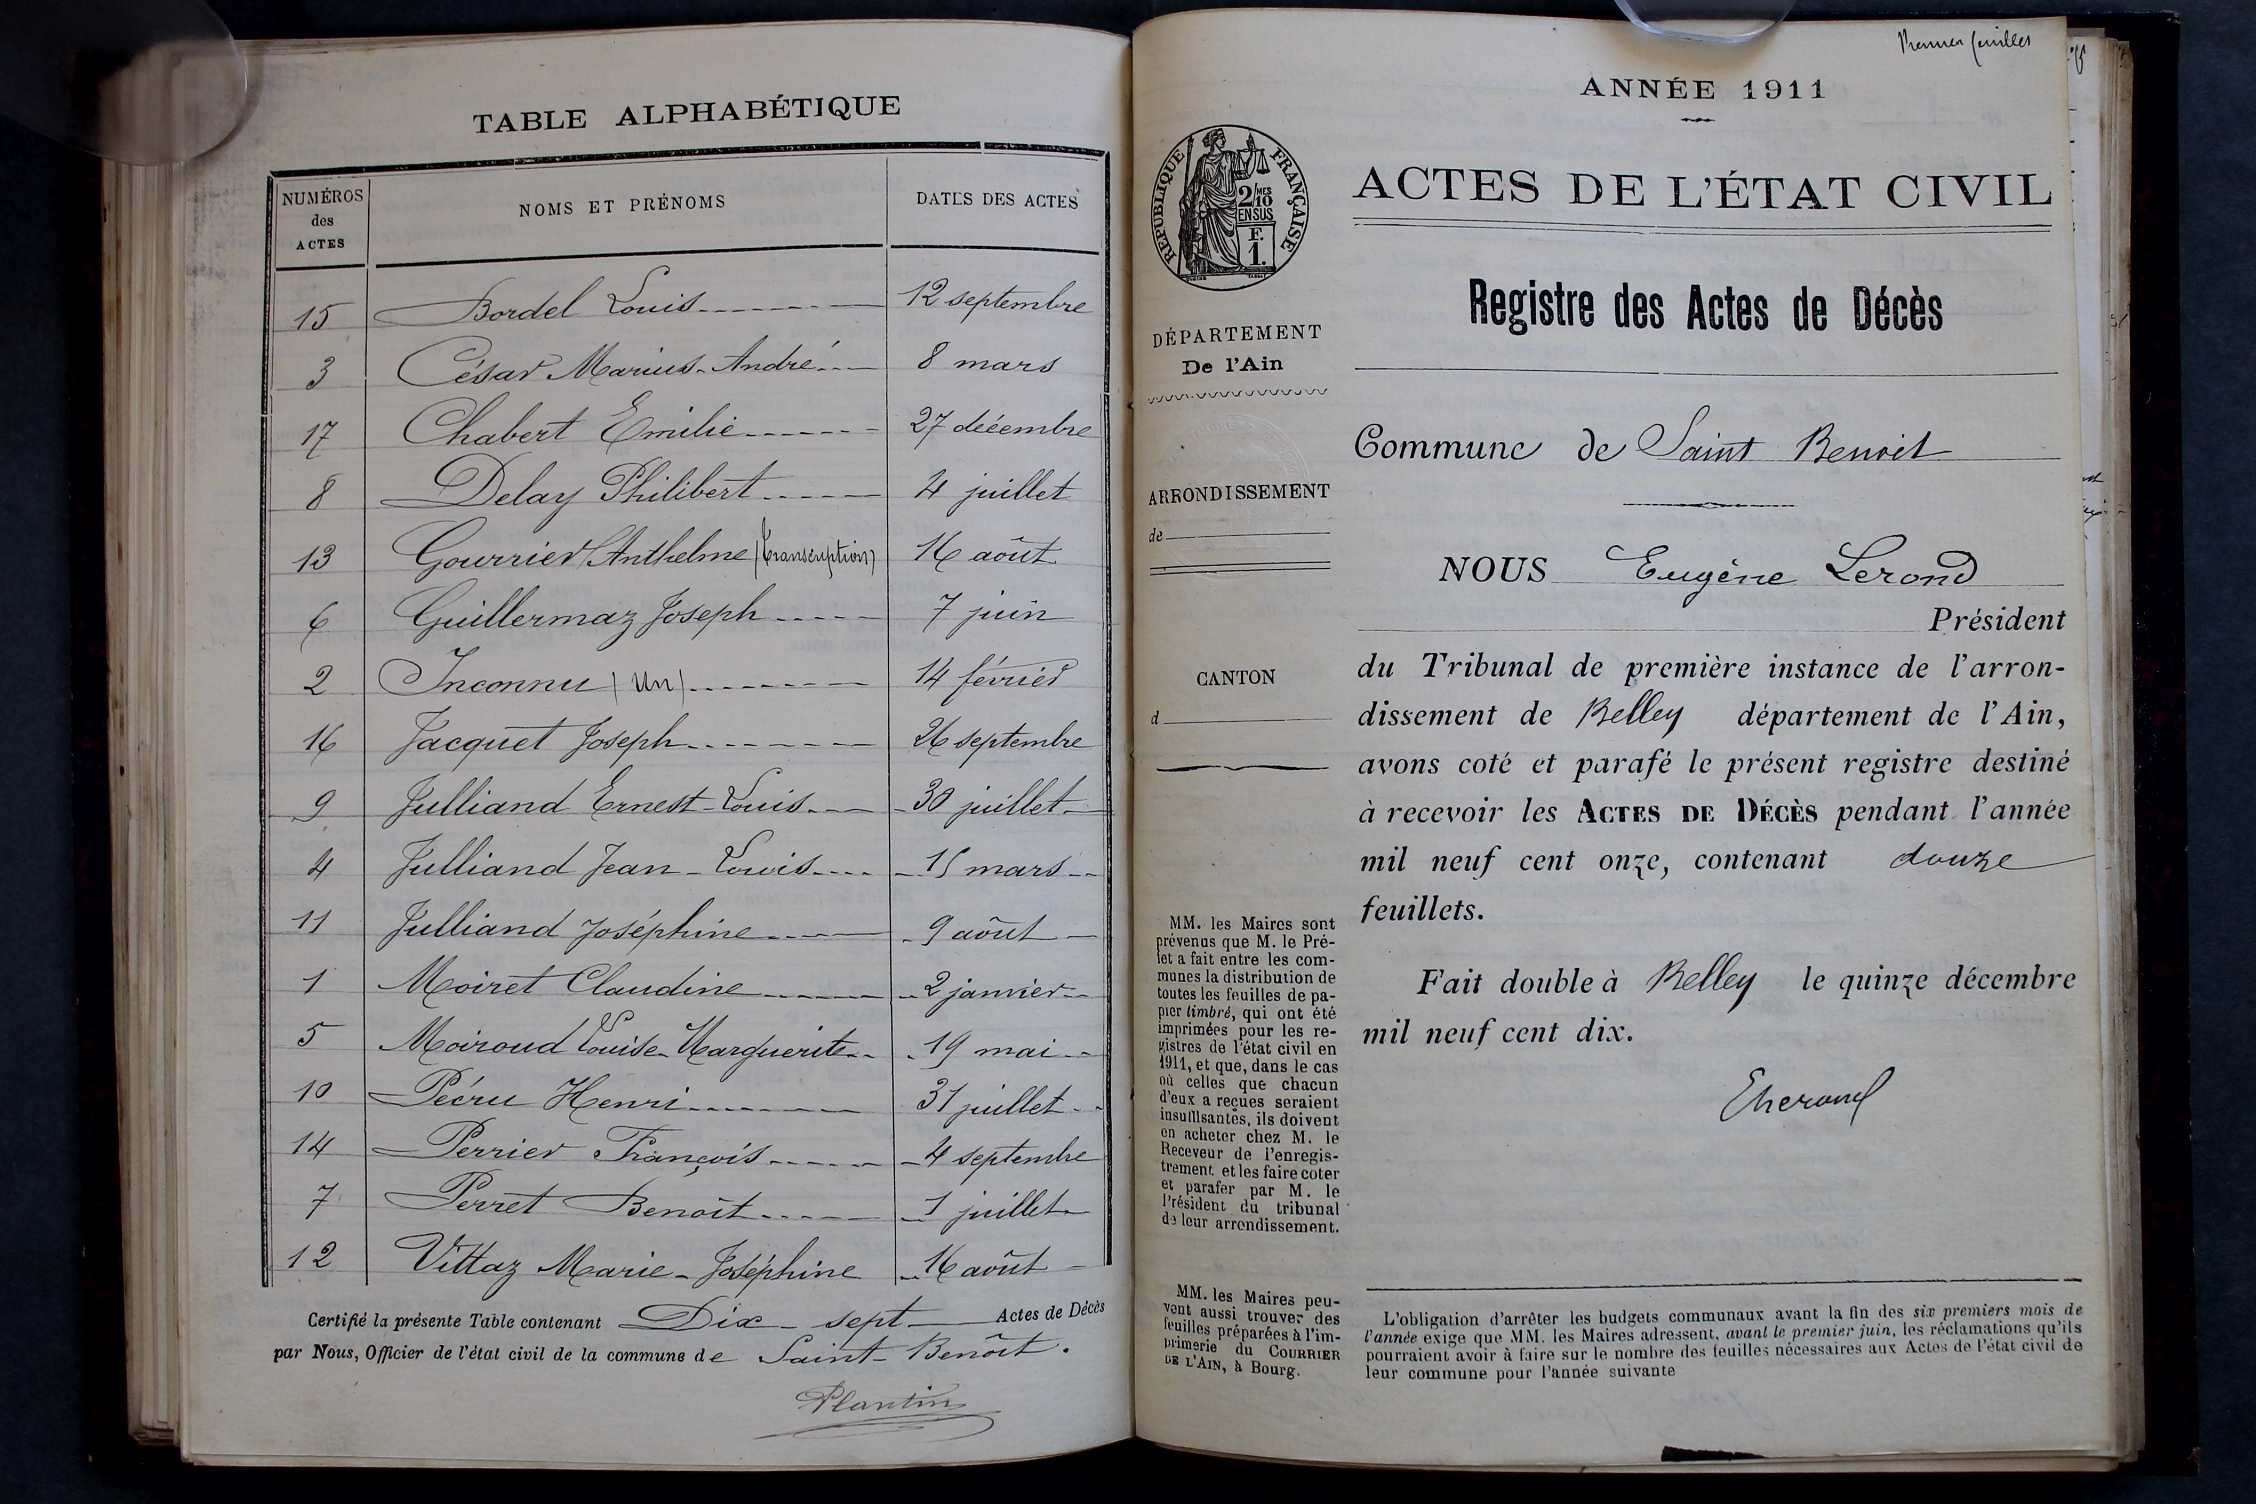 TABLE ALPHABÉTIQUE
NUMÉROS des ACTES NOMS ET PRÉNOMS DATES DES ACTES
15 Bordel Louis 12 septembre
3 César Marius-André 8 mars
17 Chabert Emilie 27 décembre
8 Delay Philibert 4 juillet
13 Gourrier Anthelme (transcription) 16 août
6 Guillermaz Joseph 7 juin
2 Inconnu (Un) 14 février
16 Jacquet Joseph 26 septembre
9 Julliand Ernest-Louis 30 juillet
4 Julliand Jean-Louis 15 mars
11 Julliand Joséphine 9 août
1 Moiret Claudine 2 janvier
5 Moiroud Louise-Marguerite 19 mai
10 Pécru Henri 31 juillet
14 Perrier François 4 septembre
7 Perret Benoît 1 juillet
12 Vittaz Marie-Joséphine 16 août
Certifié la présente Table contenant Dix-sept Actes de Décès
par Nous, Officier de l'état civil de la commune de Saint-Benoît.
Plantin
Premier feuillet
ANNÉE 1911
RÉPUBLIQUE FRANÇAISE
2/10 MES
EN SUS
F.
1.
ACTES DE L'ÉTAT CIVIL
Registre des Actes de Décès
DÉPARTEMENT
De l'Ain
ARRONDISSEMENT
de
CANTON
d
MM. les Maires sont
prévenus que M. le Pré-
fet a fait entre les com-
munes la distribution de
toutes les feuilles de pa-
pier timbré, qui ont été
imprimées pour les re-
gistres de l'état civil en
1911, et que, dans le cas
où celles que chacun
d'eux a reçues seraient
insuffisantes, ils doivent
en acheter chez M. le
Receveur de l'enregis-
trement et les faire coter
et parafer par M. le
Président du tribunal
de leur arrondissement.
MM. les Maires peu-
vent aussi trouver des
feuilles préparées à l'im-
primerie du COURRIER
DE L'AIN, à Bourg.
Commune de Saint Benoit
NOUS Eugène Lerond
Président
du Tribunal de première instance de l'arron-
dissement de Belley département de l'Ain,
avons coté et parafé le présent registre destiné
à recevoir les ACTES DE DÉCÈS pendant l'année
mil neuf cent onze, contenant douze
feuillets.
Fait double à Belley le quinze décembre
mil neuf cent dix.
L'obligation d'arrêter les budgets communaux avant la fin des six premiers mois de
l'année exige que MM. les Maires adressent, avant le premier juin, les réclamations qu'ils
pourraient avoir à faire sur le nombre des feuilles nécessaires aux Actes de l'état civil de
leur commune pour l'année suivante